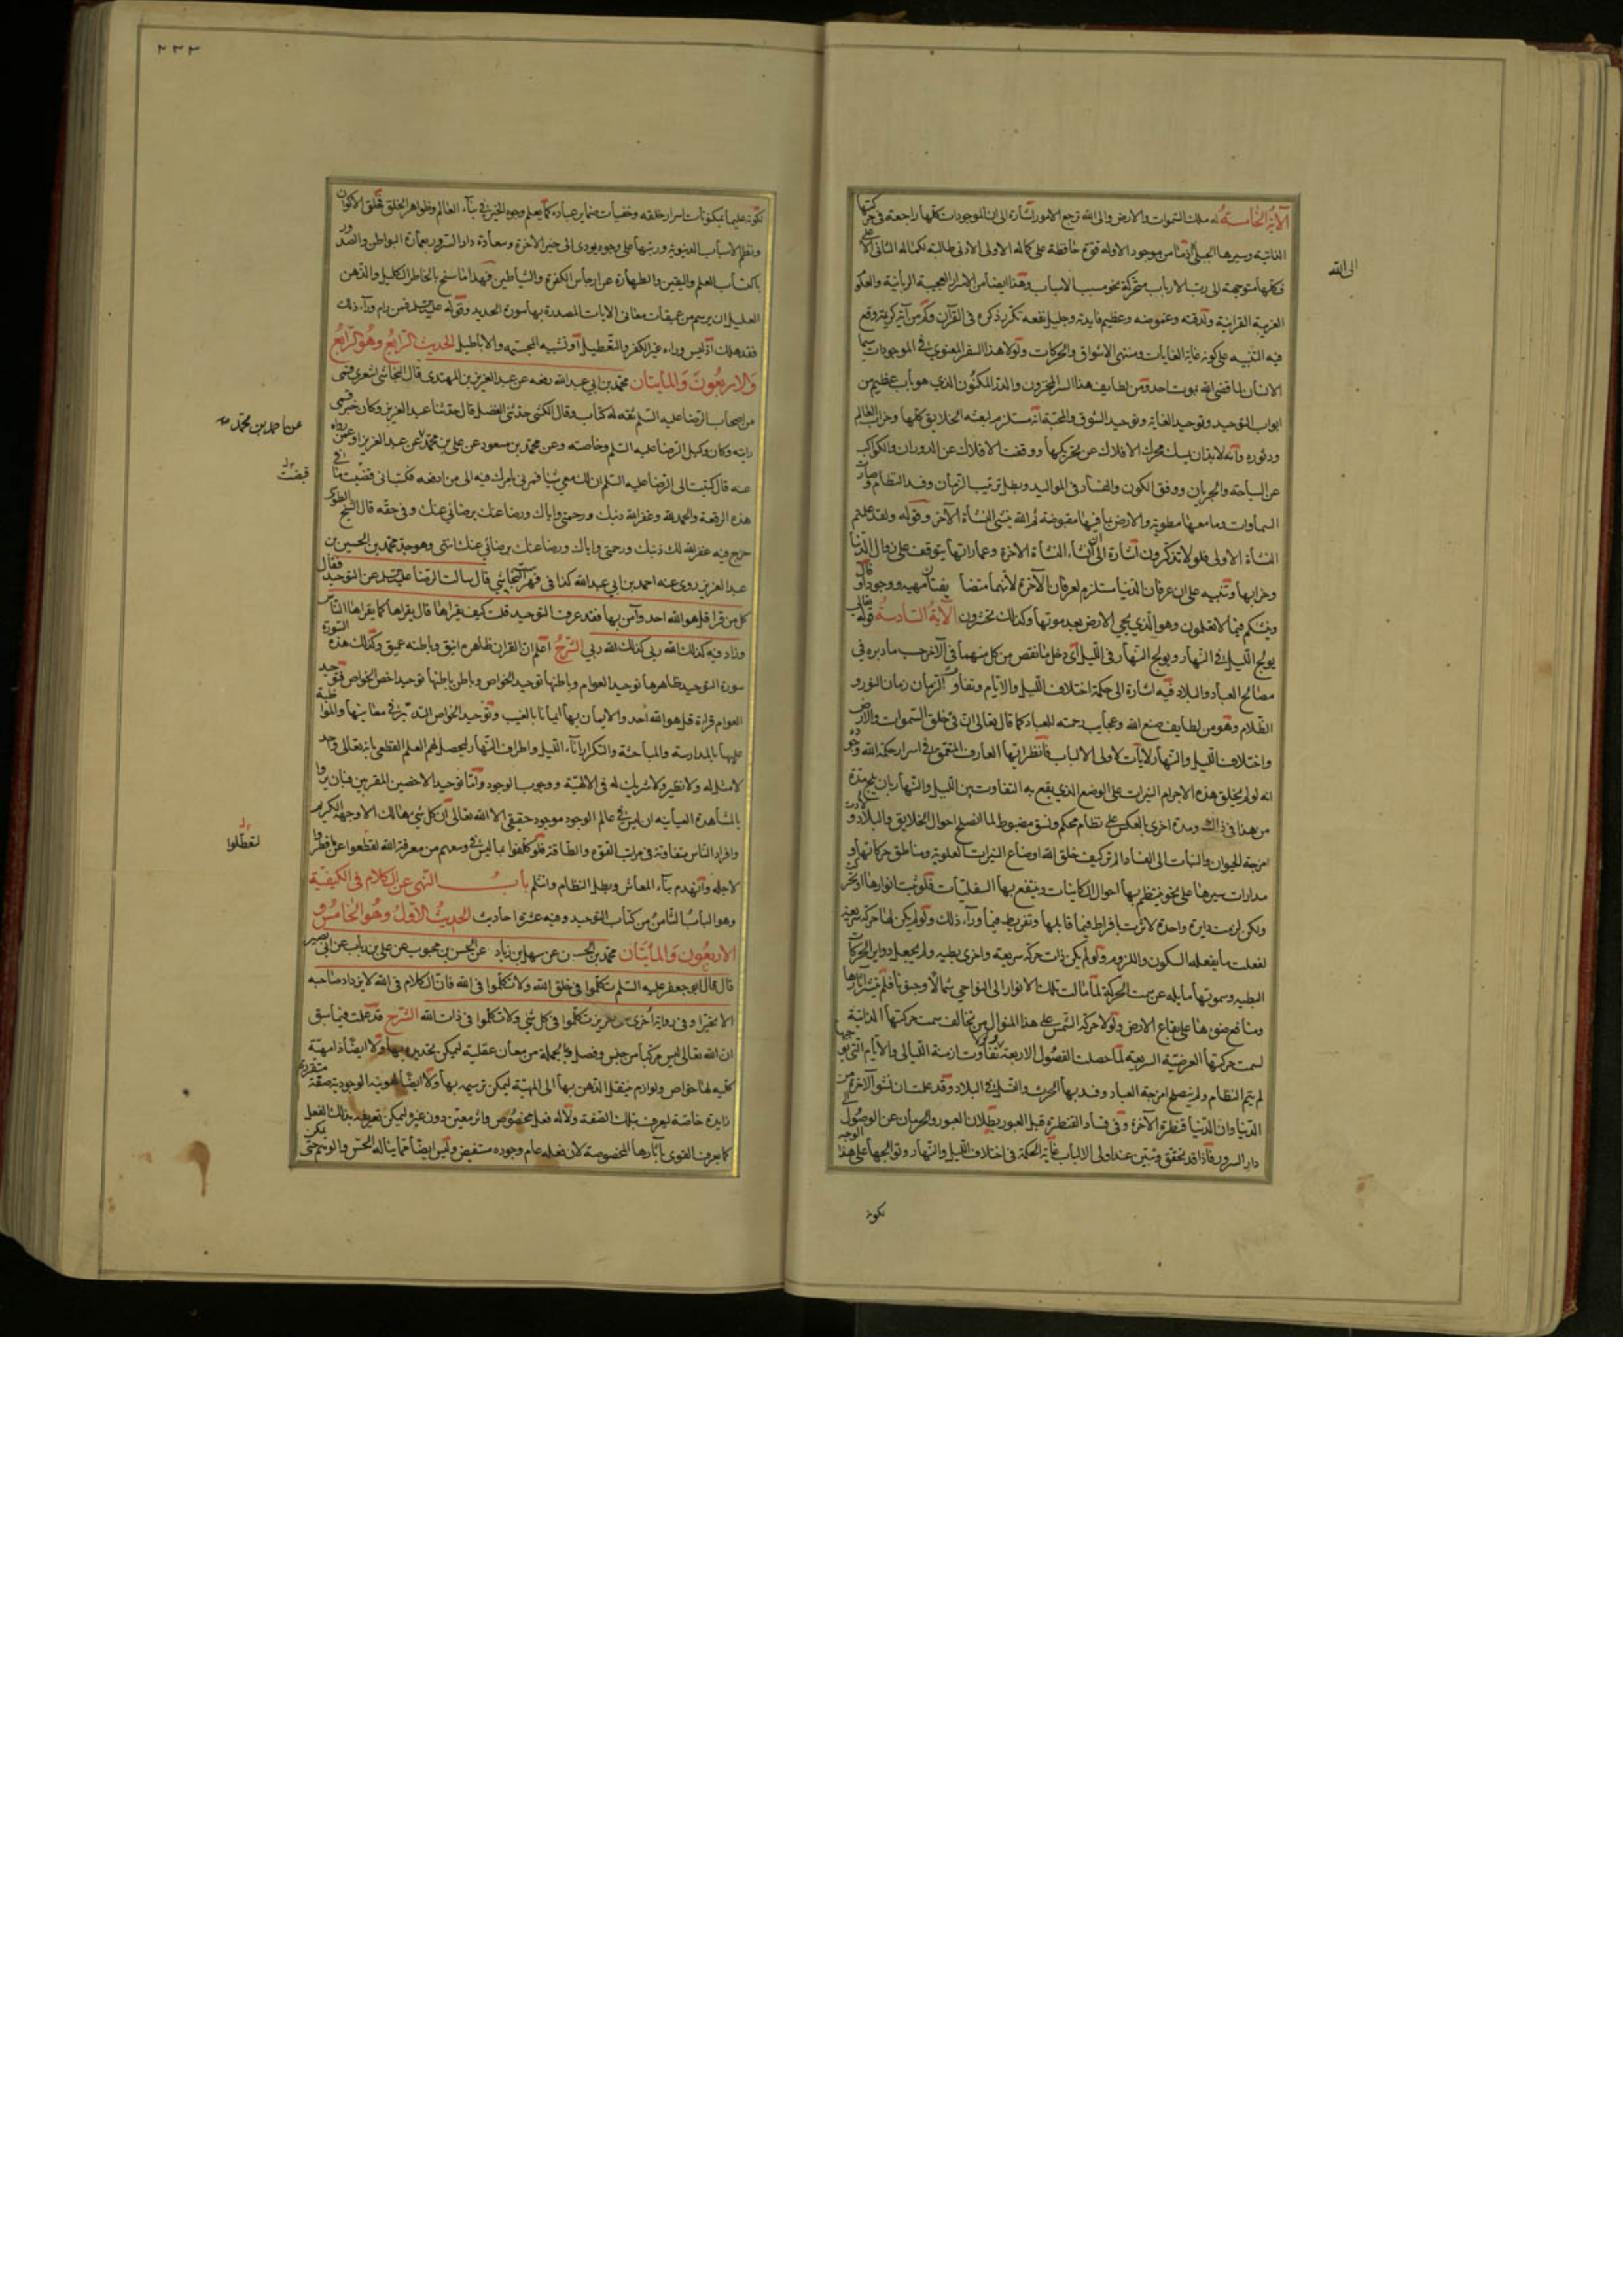 الآية الخامسة له ملك السموات والارض والى الله ترجع الامور اشارة الى ان الموجودات كلها راجعة في حركتها
الذاتية وسيرها الجبلي اذ ما من موجود الا وله قوة حافظة على كماله الاولى الادنى طالبة لكماله الثانى الاعلى
فكلها متوجهة الى رب الارباب متحركة نحو مسبب الاسباب وهذا ايضا من الاسرار العجيبة الربانية والعلوم
الغريبة القرآنية ولدقته وغموضه وعظيم فايدته وجليل نفعه تكرر ذكره فى القرآن وكم من آية كريمة وقع
فيه التنبيه على كونه غاية الغايات ومنتهى الاشواق والحركات ولولا هذا السفر المعنوي في الموجودات سيما
الانسان لما قضى الله بموت احد ومن لطايف هذا السر المخزون والدر المكنون الذي هو باب عظيم من
ابواب التوحيد وتوحيد الغاية وتوحيد الشوق والمحبة انه مستلزم لبعثه الخلايق كلها وخراب العالم
ودثوره وانه لابد ان يمسك محرك الافلاك عن تحريكها ووقفت الافلاك عن الدوران والكواكب
عن السباحة والجريان ووقف الكون والفساد فى المواليد وبطل ترتيب الزمان وفسد النظام وصارت
السماوات وما معها مطوية والارض بما فيها مقبوضة ثم الله ينشئ النشأة الآخرة وقوله ولقد علمتم
النشأة الاولى فلولا تذكرون اشارة الى ان انشاء النشأة الاخرة وعماراتها يتوقف على زوال الدنيا
وخرابها وتنبيه على ان عرفان الدنيا مستلزم لعرفان الآخرة لانهما متضايفتان مهية ووجودا وقال
وننشئكم فيما لا تعلمون وهو الذي يحيي الارض بعد موتها وكذلك تخرجون الآية السادسة قوله تعالى
يولج الليل في النهار ويولج النهار فى الليل اى دخل ما نقص من كل منهما في الآخر حسب ما دبره في
مصالح العباد والبلاد فيه اشارة الى حكمة اختلاف الليل والايام وتفاوت الزمان زمان النور و
الظلام وهو من لطايف صنع الله وعجايب رحمته للعباد كما قال تعالى ان فى خلق السموات والارض
واختلاف الليل والنهار لآيات لاولى الالباب فانظر ايها العارف المتعمق في اسرار حكمة الله وجوده
انه لو لم يخلق هذه الاجرام النيرات على الوضع الذي يقع به التفاوت بين الليل والنهار بان يلج مدة
من هذا فى ذلك ومدة اخرى بالعكس على نظام محكم ونسق مضبوط لما انصلح احوال الخلايق والبلاد ولادت
امزجة الحيوان والنبات الى الفساد الم تر كيف خلق الله اوضاع النيرات العلوية ومناطق حركاتها و
مدارات سيرها على نحو ينتظم بها احوال الكاينات وينتفع بها السفليات فلو ثبت انوارها او تحر
ولكن لزمت دايرة واحدة لاثرت بافراط فيما قابلها وتفريط فيما وراء ذلك ولو لم يكن لها حركة سريعة
لفعلت ما يفعله السكون واللزوم ولو لم يكن ذات حركة سريعة واخرى بطيئة ولم يجعل دواير الحركات
البطيئة وسموتها مايلة عن سمت الحركة لما مالت تلك الانوار الى النواحي شمالا وجنوبا فلم ينتشر آثارها
ومنافع ضوئها على بقاع الارض ولولا حركة الشمس على هذا المنوال من تخالف سمت حركتها الذاتية
لسمت حركتها العرضية السريعة لما حصلت الفصول الاربعة بتفاوت ازمنة الليالي والايام التي لو
لم يتم النظام ولم ينصلح امزجة العباد وفسد بها الحرث والنسل في البلاد وقد علمت ان نشو الآخرة من
الدنيا وان الدنيا قنطرة الآخرة وفى فساد القنطرة قبل العبور بطلان العبور والحرمان عن الوصول الى
دار السرور فاذا قد تحقق وتبين عند اولى الالباب غاية الحكمة فى اختلاف الليل والنهار وتوالجهما على هذا الوجه
الى الله
نكونه
٢٣٣
نكونه عليما بمكنونات اسرار خلقه وخفيات ضماير عباده كما يعلم وجوه الخير في بناء العالم وظواهر الخلق فخلق الاكوان
ونظم الاسباب الدنيوية ورتبها على وجوه يودى الى خير الآخرة وسعادة دار السرور بعمارة البواطن والصدور
باكتساب العلم واليقين والطهارة عن ارجاس الكفرة والشياطين فهذا ما سنح بالخاطر الكليل والذهن
العليل ان يرسم من عميقات معانى الايات المصدرة بها سورة الحديد وقوله عليه السلم فمن رام وراء ذلك
فقد هلك اذ ليس وراءه غير الكفر والتعطيل او تشبيه المجسمه والاباطيل الحديث الرابع وهو الرابع
والاربعون والمايتان محمد بن ابى عبد الله رفعه عن عبد العزيز بن المهتدى قال النجاشى اشعري قمى
من اصحاب الرضا عليه السلم ثقه له كتاب وقال الكشى حدثنى الفضل قال حدثنا عبد العزيز وكان خير قمى
رايته وكان وكيل الرضا عليه السلم وخاصته وعن محمد بن مسعود عن على بن محمد عن عبد العزيز او عمن رواه
عنه قال كتبت الى الرضا عليه السلم ان لك معي شيئا فمرنى بامرك فيه الى من ادفعه فكتب انى قبضت ما فى
هذه الرقعة والحمد لله وغفر الله ذنبك ورحمنى واياك ورضا عنك برضائي عنك وفى حقه قال الشيخ الطوسى
خرج فيه غفر الله لك ذنبك ورحمنى واياك ورضا عنك برضائي عنك انتهى وهو جد محمد بن الحسين بن
عبد العزيز روى عنه احمد بن ابى عبد الله كذا فى فهرست النجاشي قال سالت الرضا عليه السلم عن التوحيد فقال
كل من قرا قل هو الله احد وآمن بها فقد عرف التوحيد قلت كيف يقراها قال يقراها كما يقراها الناس
وزاد فيه كذلك الله ربى كذلك الله ربي الشرح اعلم ان القران ظاهره انيق وباطنه عميق وكذلك هذه السورة
سورة التوحيد ظاهرها توحيد العوام وباطنها توحيد الخواص وباطن باطنها توحيد اخص الخواص فتوحيد
العوام قراءة قل هو الله احد والايمان بها ايمانا بالغيب وتوحيد الخواص التدبر في معانيها والمواظبة
عليها بالمدارسة والمباحثة والتكرار اناء الليل واطراف النهار ليحصل لهم العلم القطعى بانه تعالى واحد
لا مثل له ولا نظير ولا شريك له فى الالهية ووجوب الوجود واما توحيد الاخصين المقربين فبان يروا
بالمشاهدة العيانيه ان ليس في عالم الوجود موجود حقيقى الا الله تعالى ان كل شئ هالك الا وجهه الكريم
وافراد الناس متفاوتة فى مراتب القوة والطاقة فلو كلفوا بما ليس في وسعهم من معرفة الله لقطعوا عما فطروا
لاجله وانهدم بناء المعاش وبطل النظام وانثلم باب النهى عن الكلام فى الكيفية
وهو الباب الثامن من كتاب التوحيد وفيه عشرة احاديث الحديث الاول وهو الخامس و
الاربعون والمايتان محمد بن الحسن عن سهل بن زياد عن الحسن بن محبوب عن على بن رياب عن ابى بصير
قال قال ابو جعفر عليه السلم تكلموا فى خلق الله ولا تتكلموا فى الله فان الكلام فى الله لا يزداد صاحبه
الا تحيرا وفى رواية اخرى عن حريز تكلموا فى كل شئ ولا تتكلموا فى ذات الله الشرح قد علمت فيما سبق
ان الله تعالى ليس مركبا من جنس وفصل وبالجملة من معان عقلية ليمكن تحديده بها ولا ايضا ذا مهية
كلية لها خواص ولوازم ينتقل الذهن بها الى المهية ليمكن ترسيمه بها ولا ايضا لهويته الوجودية صفة متقررة
زايدة خاصة ليعرف بتلك الصفة ولا له فعل مخصوص واثر معين دون غيره ليمكن تعريفه بذلك الفعل
كما يعرف القوى بآثارها المخصوصة لان فعله عام وجوده مستفيض وليس ايضا مما يناله الحس والوهم حتى يمكن
عن احمد بن محمد
قبضت
لتعطلوا